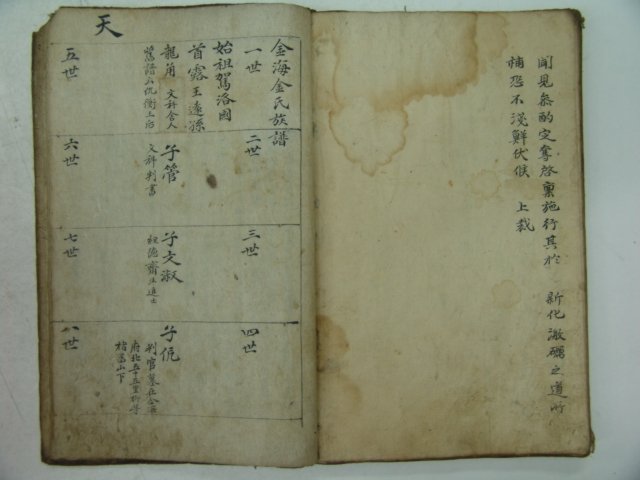 聞見參酌定奪啓稟施行其於 新化激礪之道所
補恐不淺鮮伏候 上裁
金海金氏族譜
一世
始祖駕洛國
首露王遠孫
龍角 文科舍人
二世
子管
文科判書
三世
子文淑
四世
子伉
判官墓在金海
府北五十五里
山下
天
五世
六世
七世
八世